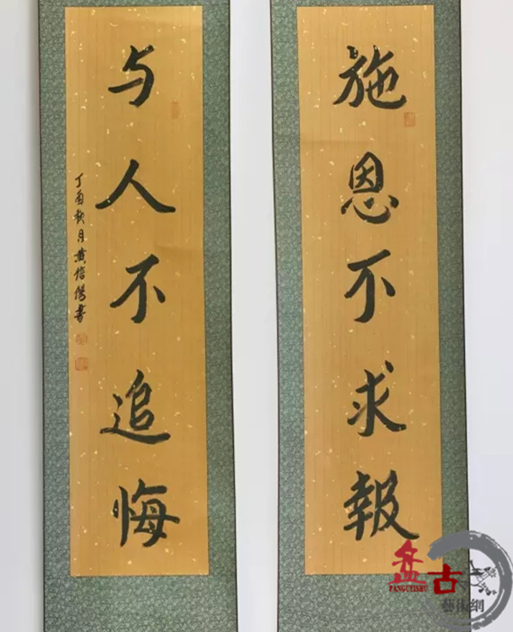 施恩不求報
与人不追悔
丁酉秋月黄培杰書
盘古
PANGUYISHU
藝術網